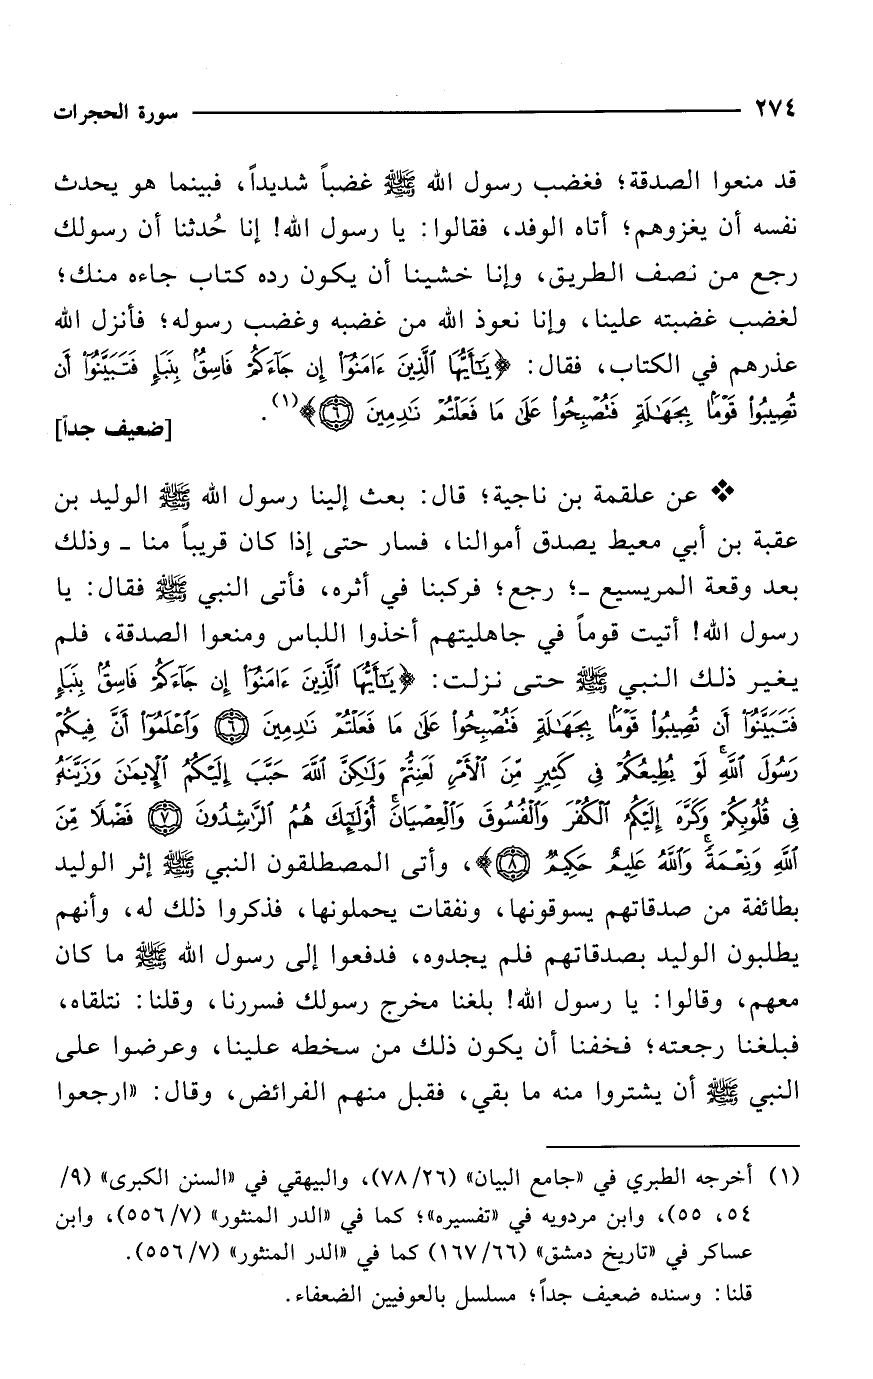 ٢٧٤ سورة الحجرات
قد منعوا الصدقة؛ فغضب رسول الله ﷺ غضباً شديداً، فبينما هو يحدث
نفسه أن يغزوهم؛ أتاه الوفد، فقالوا: يا رسول الله! إنا حُدثنا أن رسولك
رجع من نصف الطريق، وإنا خشينا أن يكون رده كتاب جاءه منك؛
لغضب غضبته علينا، وإنا نعوذ الله من غضبه وغضب رسوله؛ فأنزل الله
عذرهم في الكتاب، فقال: ﴿يَٰٓأَيُّهَا ٱلَّذِينَ ءَامَنُوٓا۟ إِن جَآءَكُمْ فَاسِقٌۢ بِنَبَإٍ فَتَبَيَّنُوٓا۟ أَن
تُصِيبُوا۟ قَوْمًۢا بِجَهَٰلَةٍ فَتُصْبِحُوا۟ عَلَىٰ مَا فَعَلْتُمْ نَٰدِمِينَ ٦﴾(١). [ضعيف جداً]
❖ عن علقمة بن ناجية؛ قال: بعث إلينا رسول الله ﷺ الوليد بن
عقبة بن أبي معيط يصدق أموالنا، فسار حتى إذا كان قريباً منا ـ وذلك
بعد وقعة المريسيع ـ؛ رجع؛ فركبنا في أثره، فأتى النبي ﷺ فقال: يا
رسول الله! أتيت قوماً في جاهليتهم أخذوا اللباس ومنعوا الصدقة، فلم
يغير ذلك النبي ﷺ حتى نزلت: ﴿يَٰٓأَيُّهَا ٱلَّذِينَ ءَامَنُوٓا۟ إِن جَآءَكُمْ فَاسِقٌۢ بِنَبَإٍ
فَتَبَيَّنُوٓا۟ أَن تُصِيبُوا۟ قَوْمًۢا بِجَهَٰلَةٍ فَتُصْبِحُوا۟ عَلَىٰ مَا فَعَلْتُمْ نَٰدِمِينَ ٦ وَٱعْلَمُوٓا۟ أَنَّ فِيكُمْ
رَسُولَ ٱللَّهِ ۚ لَوْ يُطِيعُكُمْ فِى كَثِيرٍ مِّنَ ٱلْأَمْرِ لَعَنِتُّمْ وَلَٰكِنَّ ٱللَّهَ حَبَّبَ إِلَيْكُمُ ٱلْإِيمَٰنَ وَزَيَّنَهُۥ
فِى قُلُوبِكُمْ وَكَرَّهَ إِلَيْكُمُ ٱلْكُفْرَ وَٱلْفُسُوقَ وَٱلْعِصْيَانَ ۚ أُو۟لَٰٓئِكَ هُمُ ٱلرَّٰشِدُونَ ٧ فَضْلًا مِّنَ
ٱللَّهِ وَنِعْمَةً ۚ وَٱللَّهُ عَلِيمٌ حَكِيمٌ ٨﴾، وأتى المصطلقون النبي ﷺ إثر الوليد
بطائفة من صدقاتهم يسوقونها، ونفقات يحملونها، فذكروا ذلك له، وأنهم
يطلبون الوليد بصدقاتهم فلم يجدوه، فدفعوا إلى رسول الله ﷺ ما كان
معهم، وقالوا: يا رسول الله! بلغنا مخرج رسولك فسررنا، وقلنا: نتلقاه،
فبلغنا رجعته؛ فخفنا أن يكون ذلك من سخطه علينا، وعرضوا على
النبي ﷺ أن يشتروا منه ما بقي، فقبل منهم الفرائض، وقال: «ارجعوا
(١) أخرجه الطبري في «جامع البيان» (٧٨/٢٦)، والبيهقي في «السنن الكبرى» (٩/
٥٤، ٥٥)، وابن مردويه في «تفسيره»؛ كما في «الدر المنثور» (٥٥٦/٧)، وابن
عساكر في «تاريخ دمشق» (١٦٧/٦٦) كما في «الدر المنثور» (٥٥٦/٧).
قلنا: وسنده ضعيف جداً؛ مسلسل بالعوفيين الضعفاء.